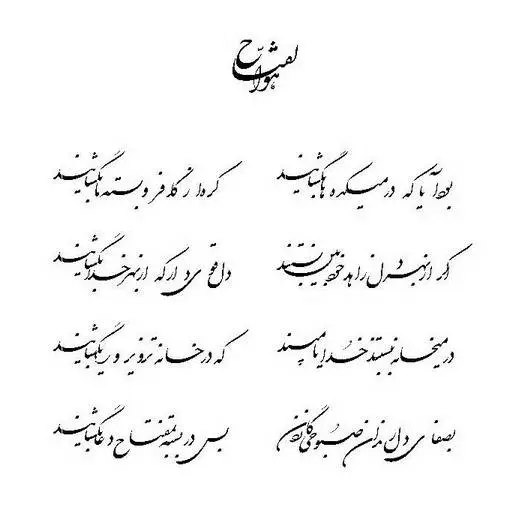 هوالفتاح
بود آیا که در میکده ها بگشایند گره از کار فروبسته ما بگشایند
اگر از بهر دل زاهد خودبین بستند دل قوی دار که از بهر خدا بگشایند
در میخانه ببستند خدایا مپسند که در خانه تزویر و ریا بگشایند
بصفای دل رندان صبوحی زدگان بس در بسته بمفتاح دعا بگشایند